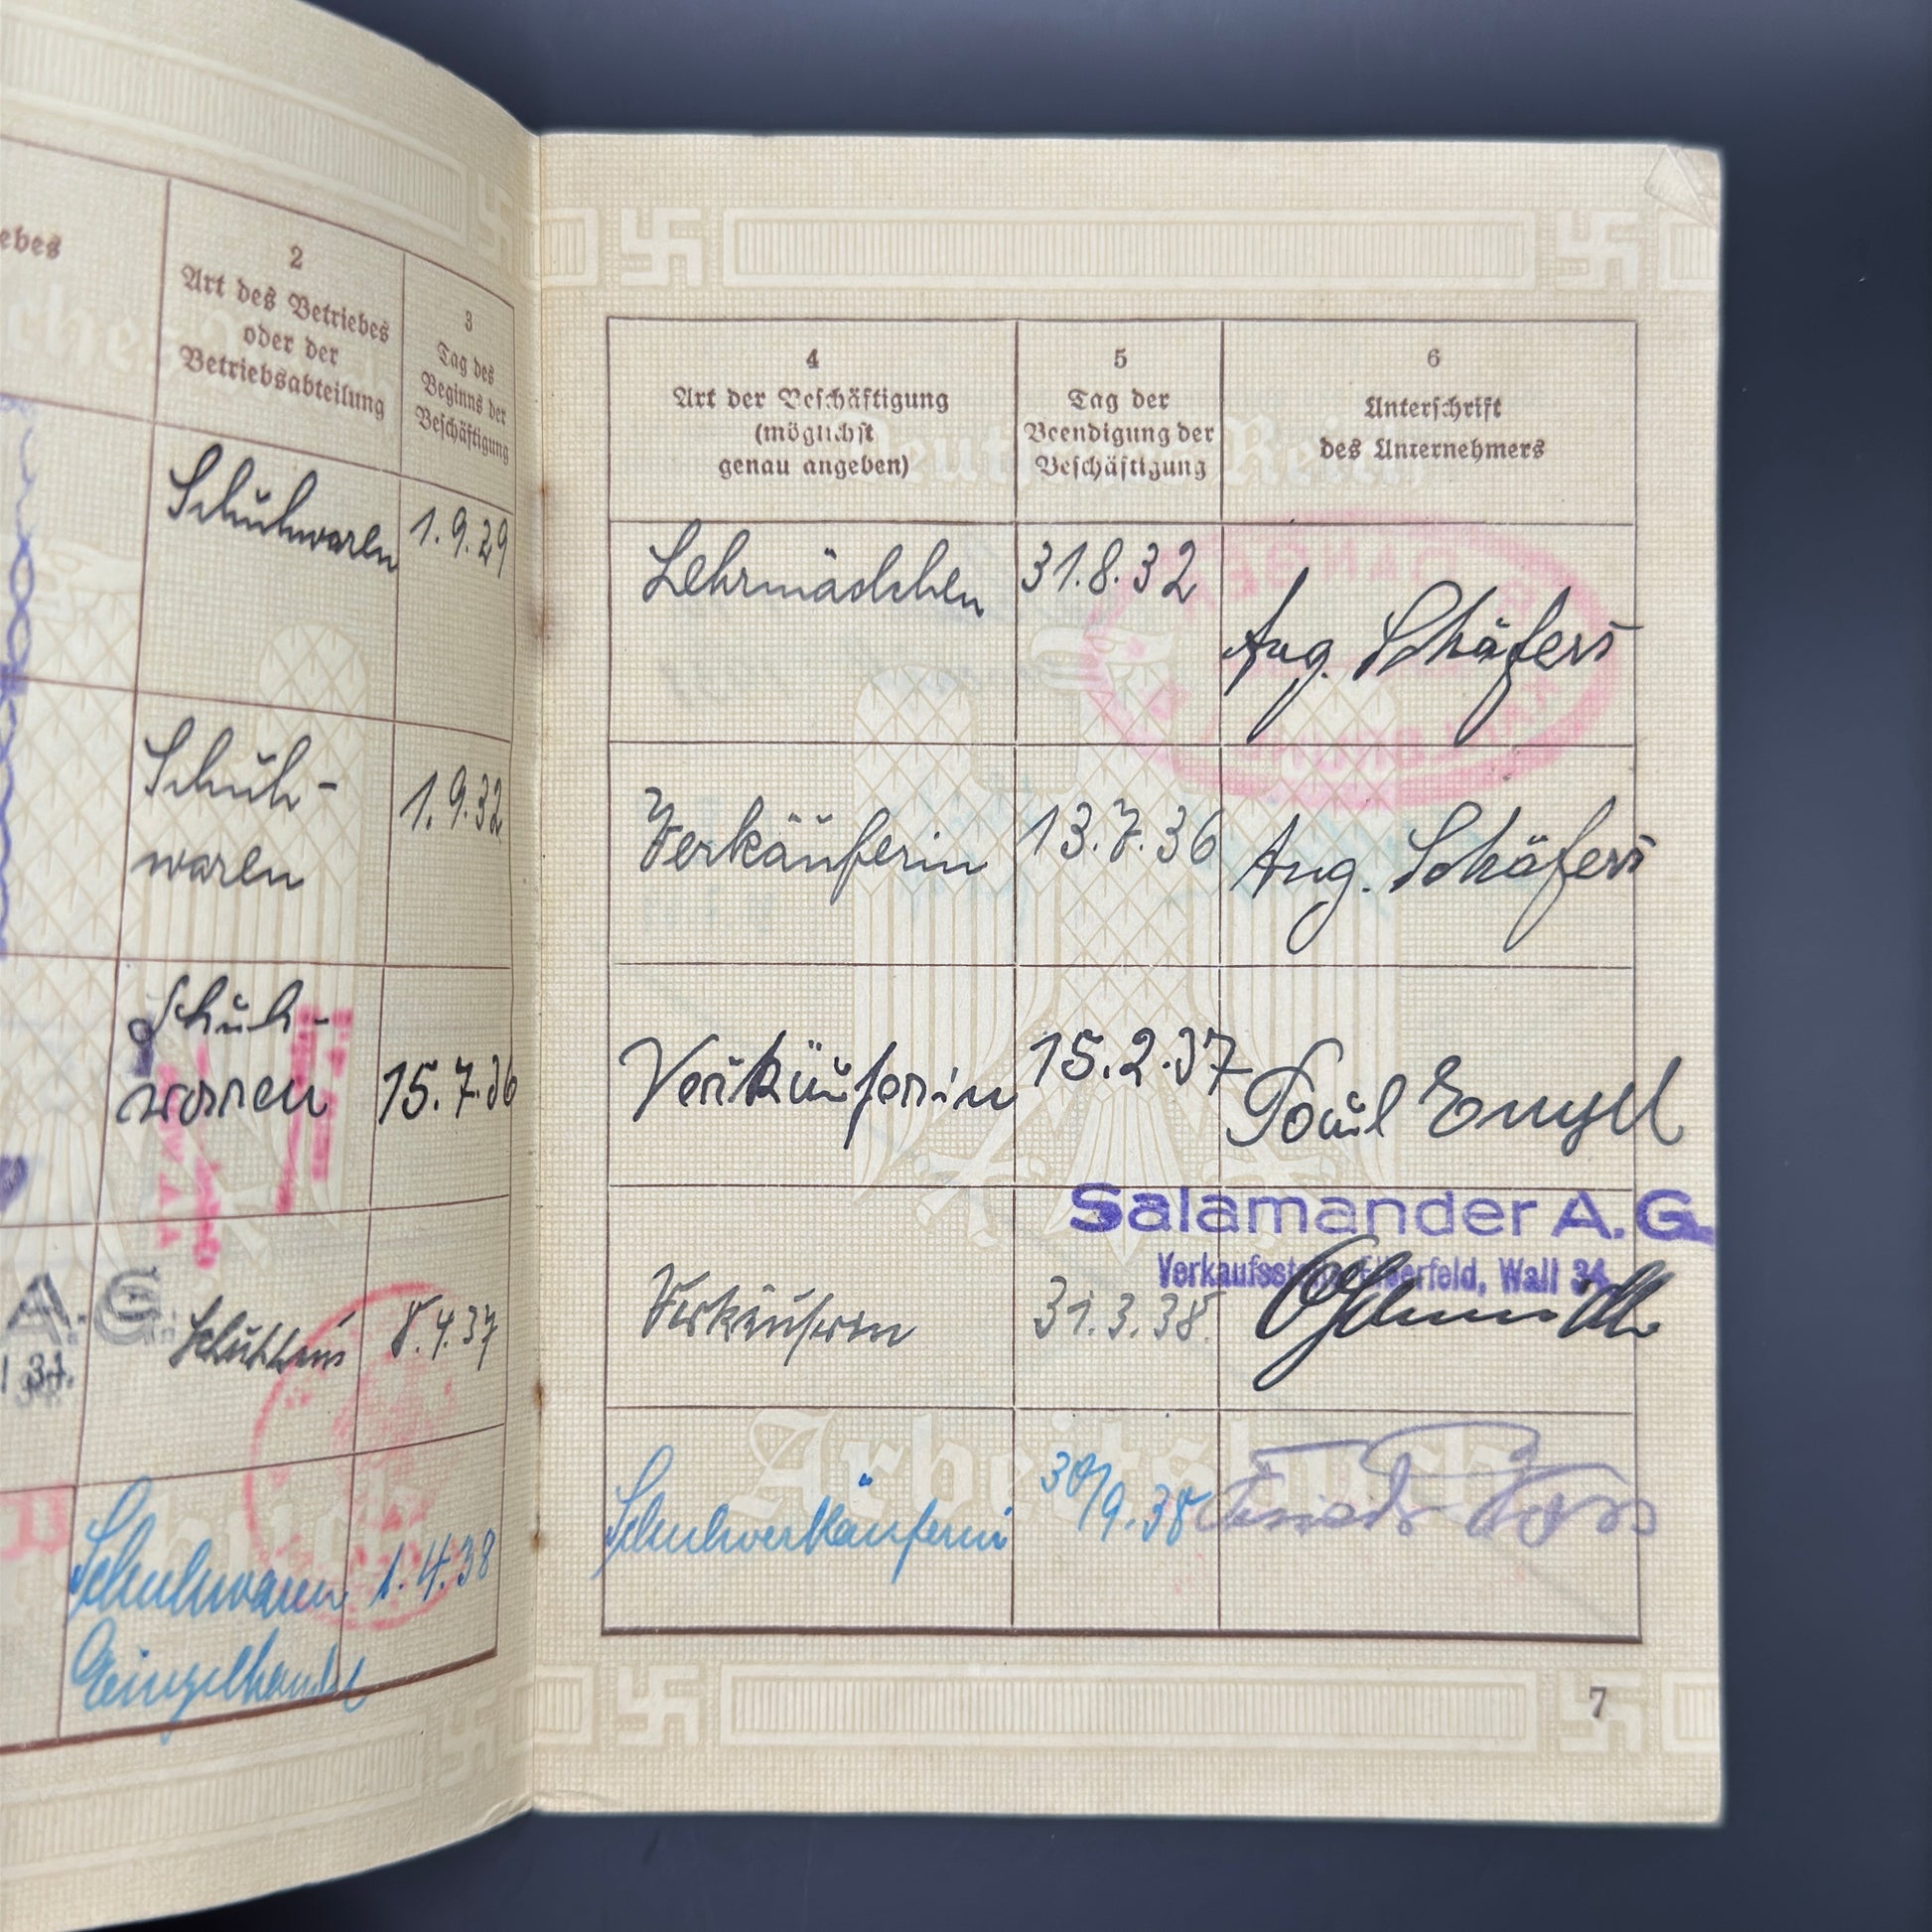 ebes
2
Art des Betriebes
oder der
Betriebsabteilung
3
Tag des
Beginns der
Beschäftigung
Schuhwaren 1.9.29
Schuh-
waren
1.9.32
Schuh-
waren
15.7.36
A.-G.
34.
8.4.37
Schuhwaren
Einzelhandel
1.4.38
4
Art der Beschäftigung
(möglichst
genau angeben)
5
Tag der
Beendigung der
Beschäftigung
6
Unterschrift
des Unternehmers
Lehrmädchen 31.8.32 Aug. Schäfers
Verkäuferin 13.7.36 Aug. Schäfers
Verkäuferin 15.2.37 Paul Engel
Salamander A.G.
Verkaufsstelle Elberfeld, Wall 34
Verkäuferin 31.3.38.
Schuhverkäuferin 30/9.38
Deutsches Reich
Arbeitsbuch
7